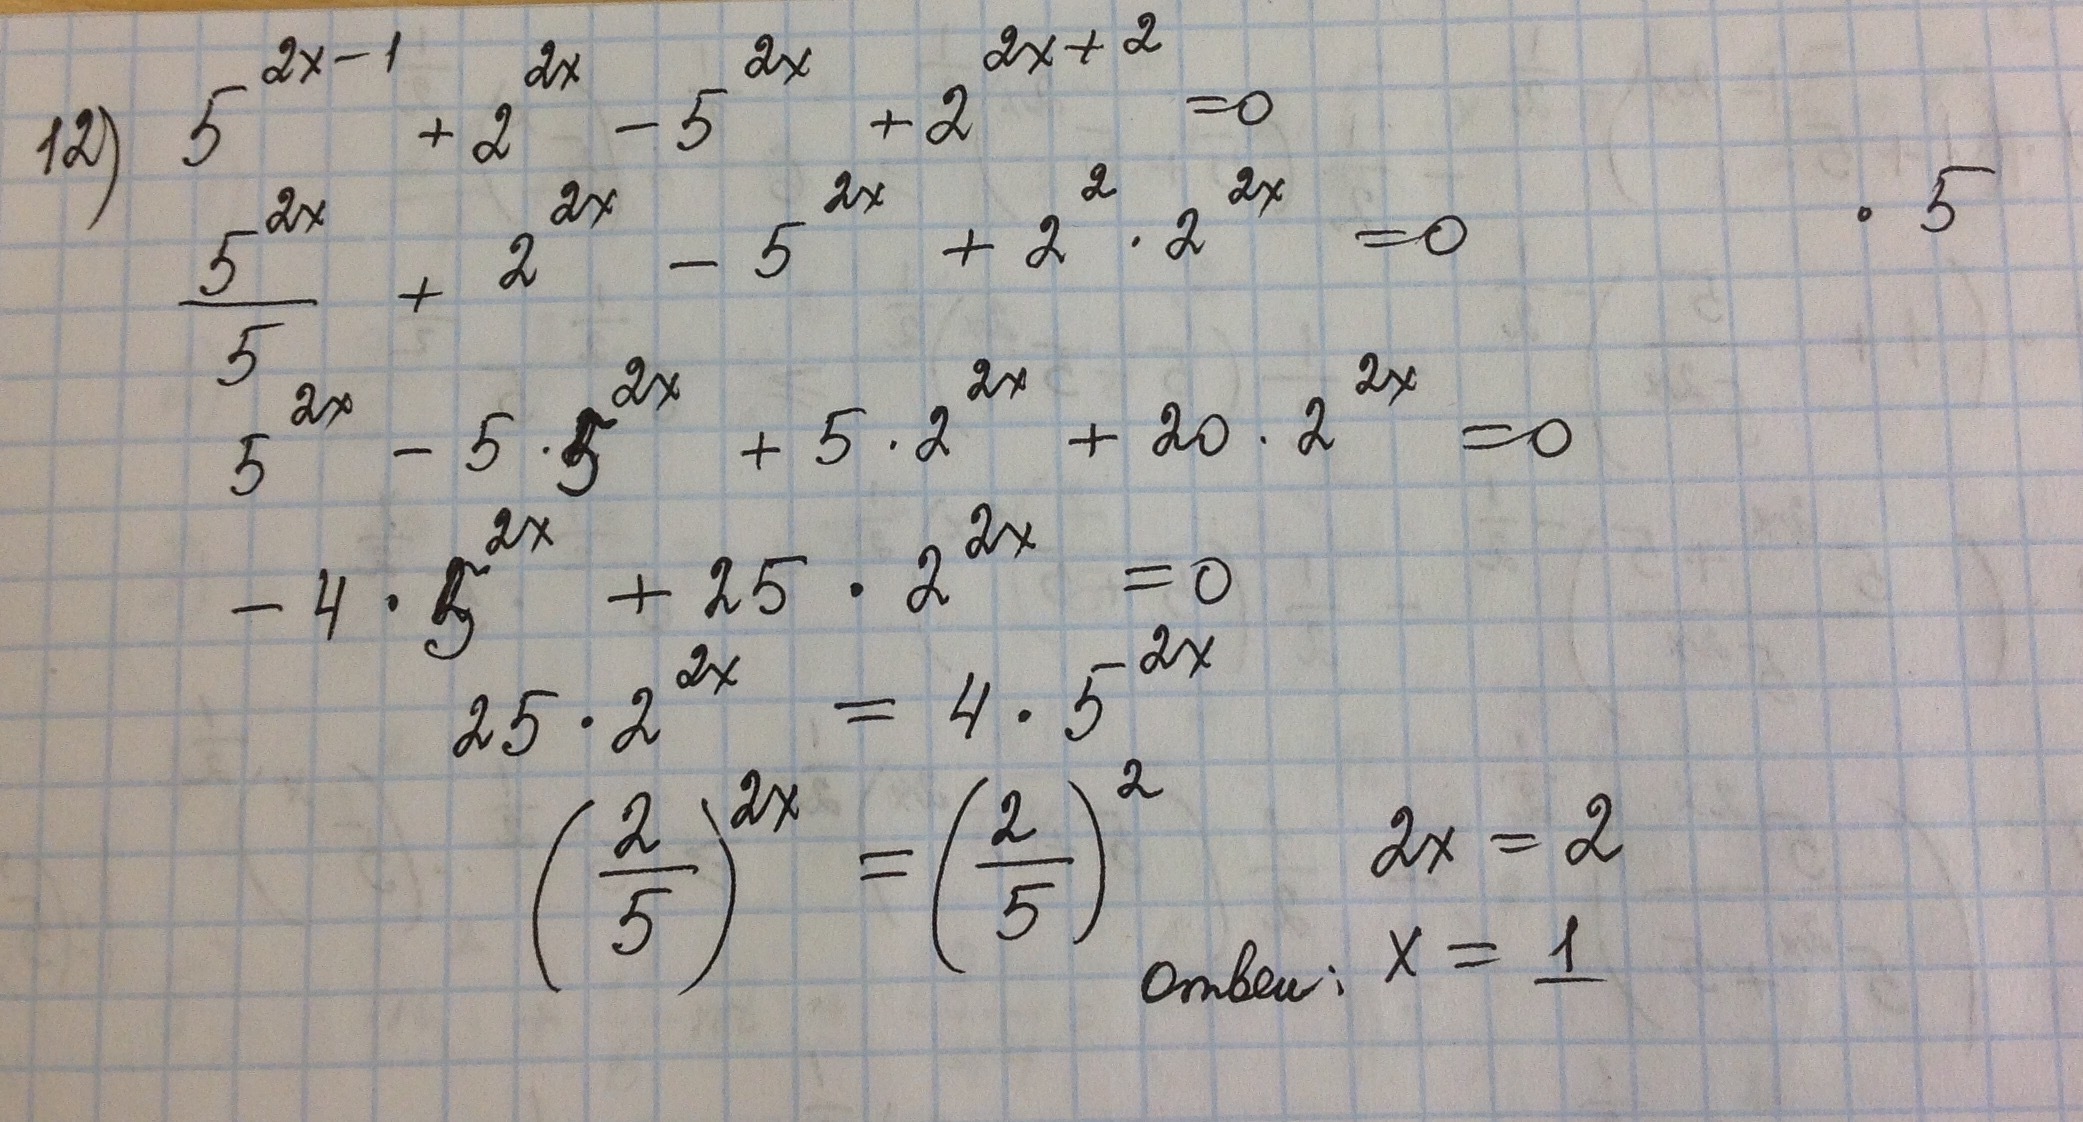 12) 5^{2x-1} + 2^{2x} - 5^{2x} + 2^{2x+2} = 0
\frac{5^{2x}}{5} + 2^{2x} - 5^{2x} + 2^2 · 2^{2x} = 0 · 5
5^{2x} - 5 · 5^{2x} + 5 · 2^{2x} + 20 · 2^{2x} = 0
- 4 · 5^{2x} + 25 · 2^{2x} = 0
25 · 2^{2x} = 4 · 5^{2x}
(\frac{2}{5})^{2x} = (\frac{2}{5})^2 2x = 2
ответ: x = 1